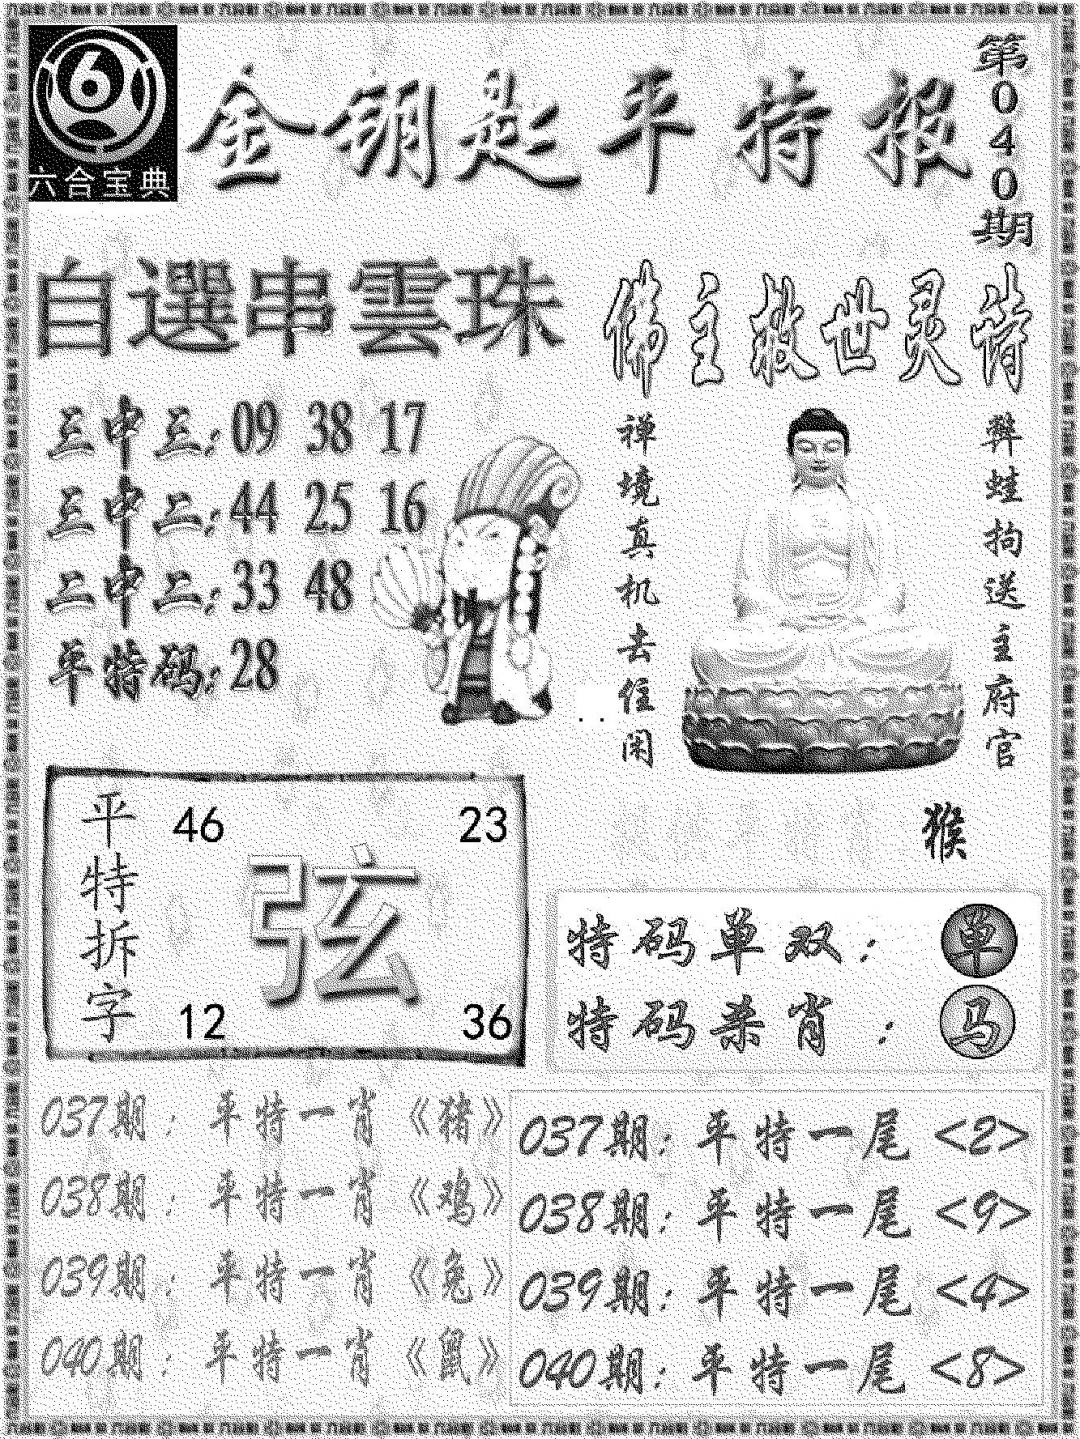 6
六合宝典
金钥匙平特报
第040期
自選串雲珠
三中三:09 38 17
三中二:44 25 16
二中二:33 48
平特码:28
佛主救世灵诗
禅境真机去住闲
弊蛙拘送主府官
猴
平特拆字
46 23
弦
12 36
特码单双：单
特码杀肖：马
037期：平特一肖《猪》
038期：平特一肖《鸡》
039期：平特一肖《兔》
040期：平特一肖《鼠》
037期：平特一尾<2>
038期：平特一尾<9>
039期：平特一尾<4>
040期：平特一尾<8>